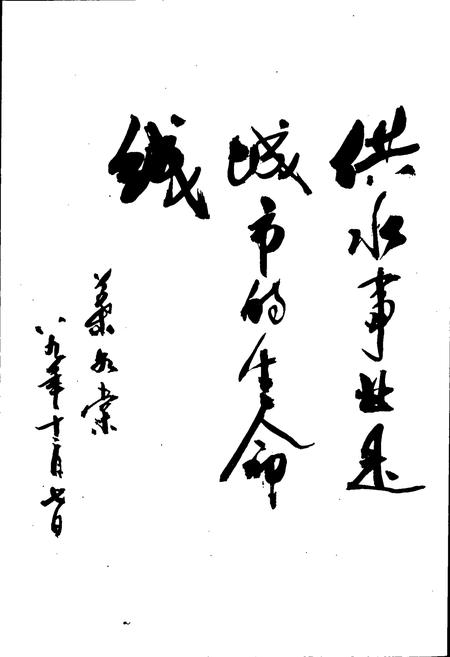 供水事业是
城市的生命
线
葉如棠
八九年十二月七日